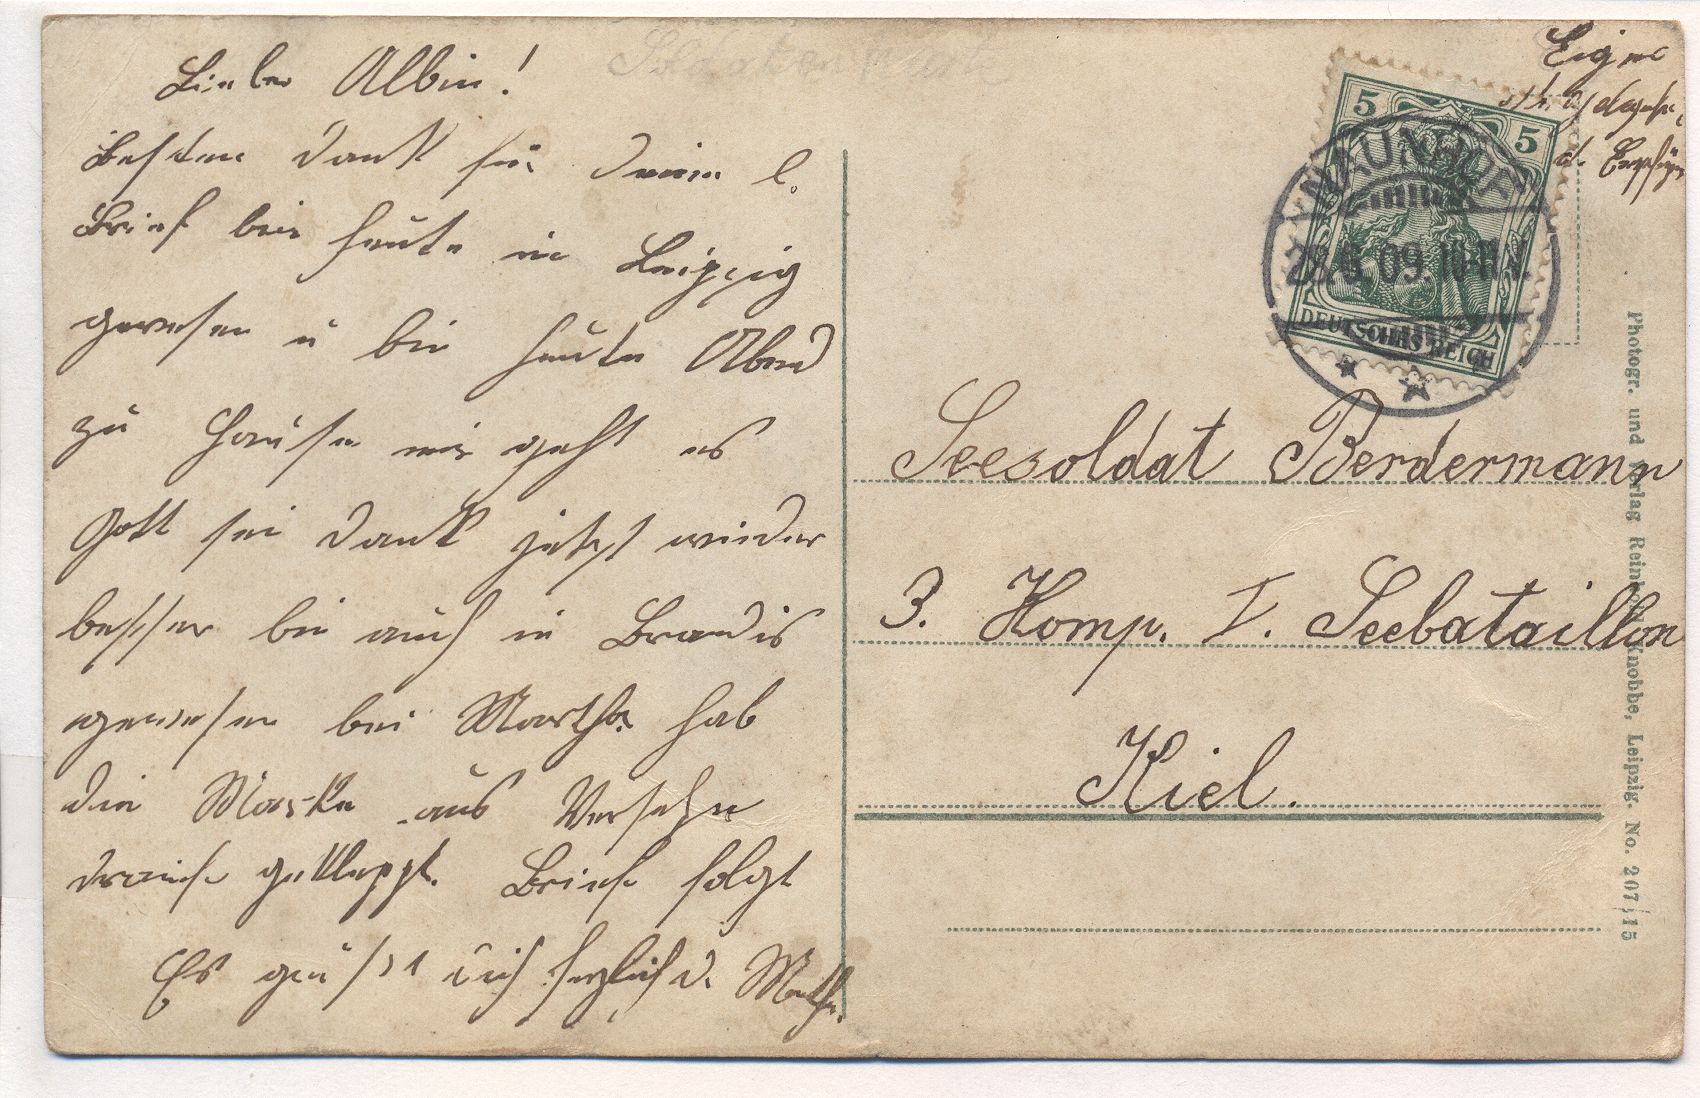 Lieber Albin!
Besten Dank für Deinen l.
Brief bin heute in Leipzig
gewesen u bin heute Abend
zu Hause mir geht es
Gott sei Dank jetzt wieder
besser bin auch in Brandis
gewesen bei Martha hab
die Marke aus Versehn
drauf geklappt. Brief folgt
Es grüsst dich herzlich d.
Soldatenkarte
Eigne
5
5
NAUNHOF
09. 10-11 V.
DEUTSCHES REICH
Seesoldat Berdermann
3. Komp. I. Seebataillon
Kiel.
Photogr. und Verlag Reinhold Knobbe, Leipzig. No. 207/15